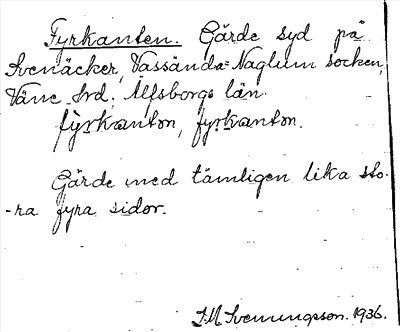 Fyrkanten. Gärde syd på
Svenäcker, Vassända=Naglum socken,
Väne hrd. Älfsborgs län.
fyrkanton, fyrkanton.
Gärde med tämligen lika sto-
-ra fyra sidor.
J.M. Svenungsson. 1936.